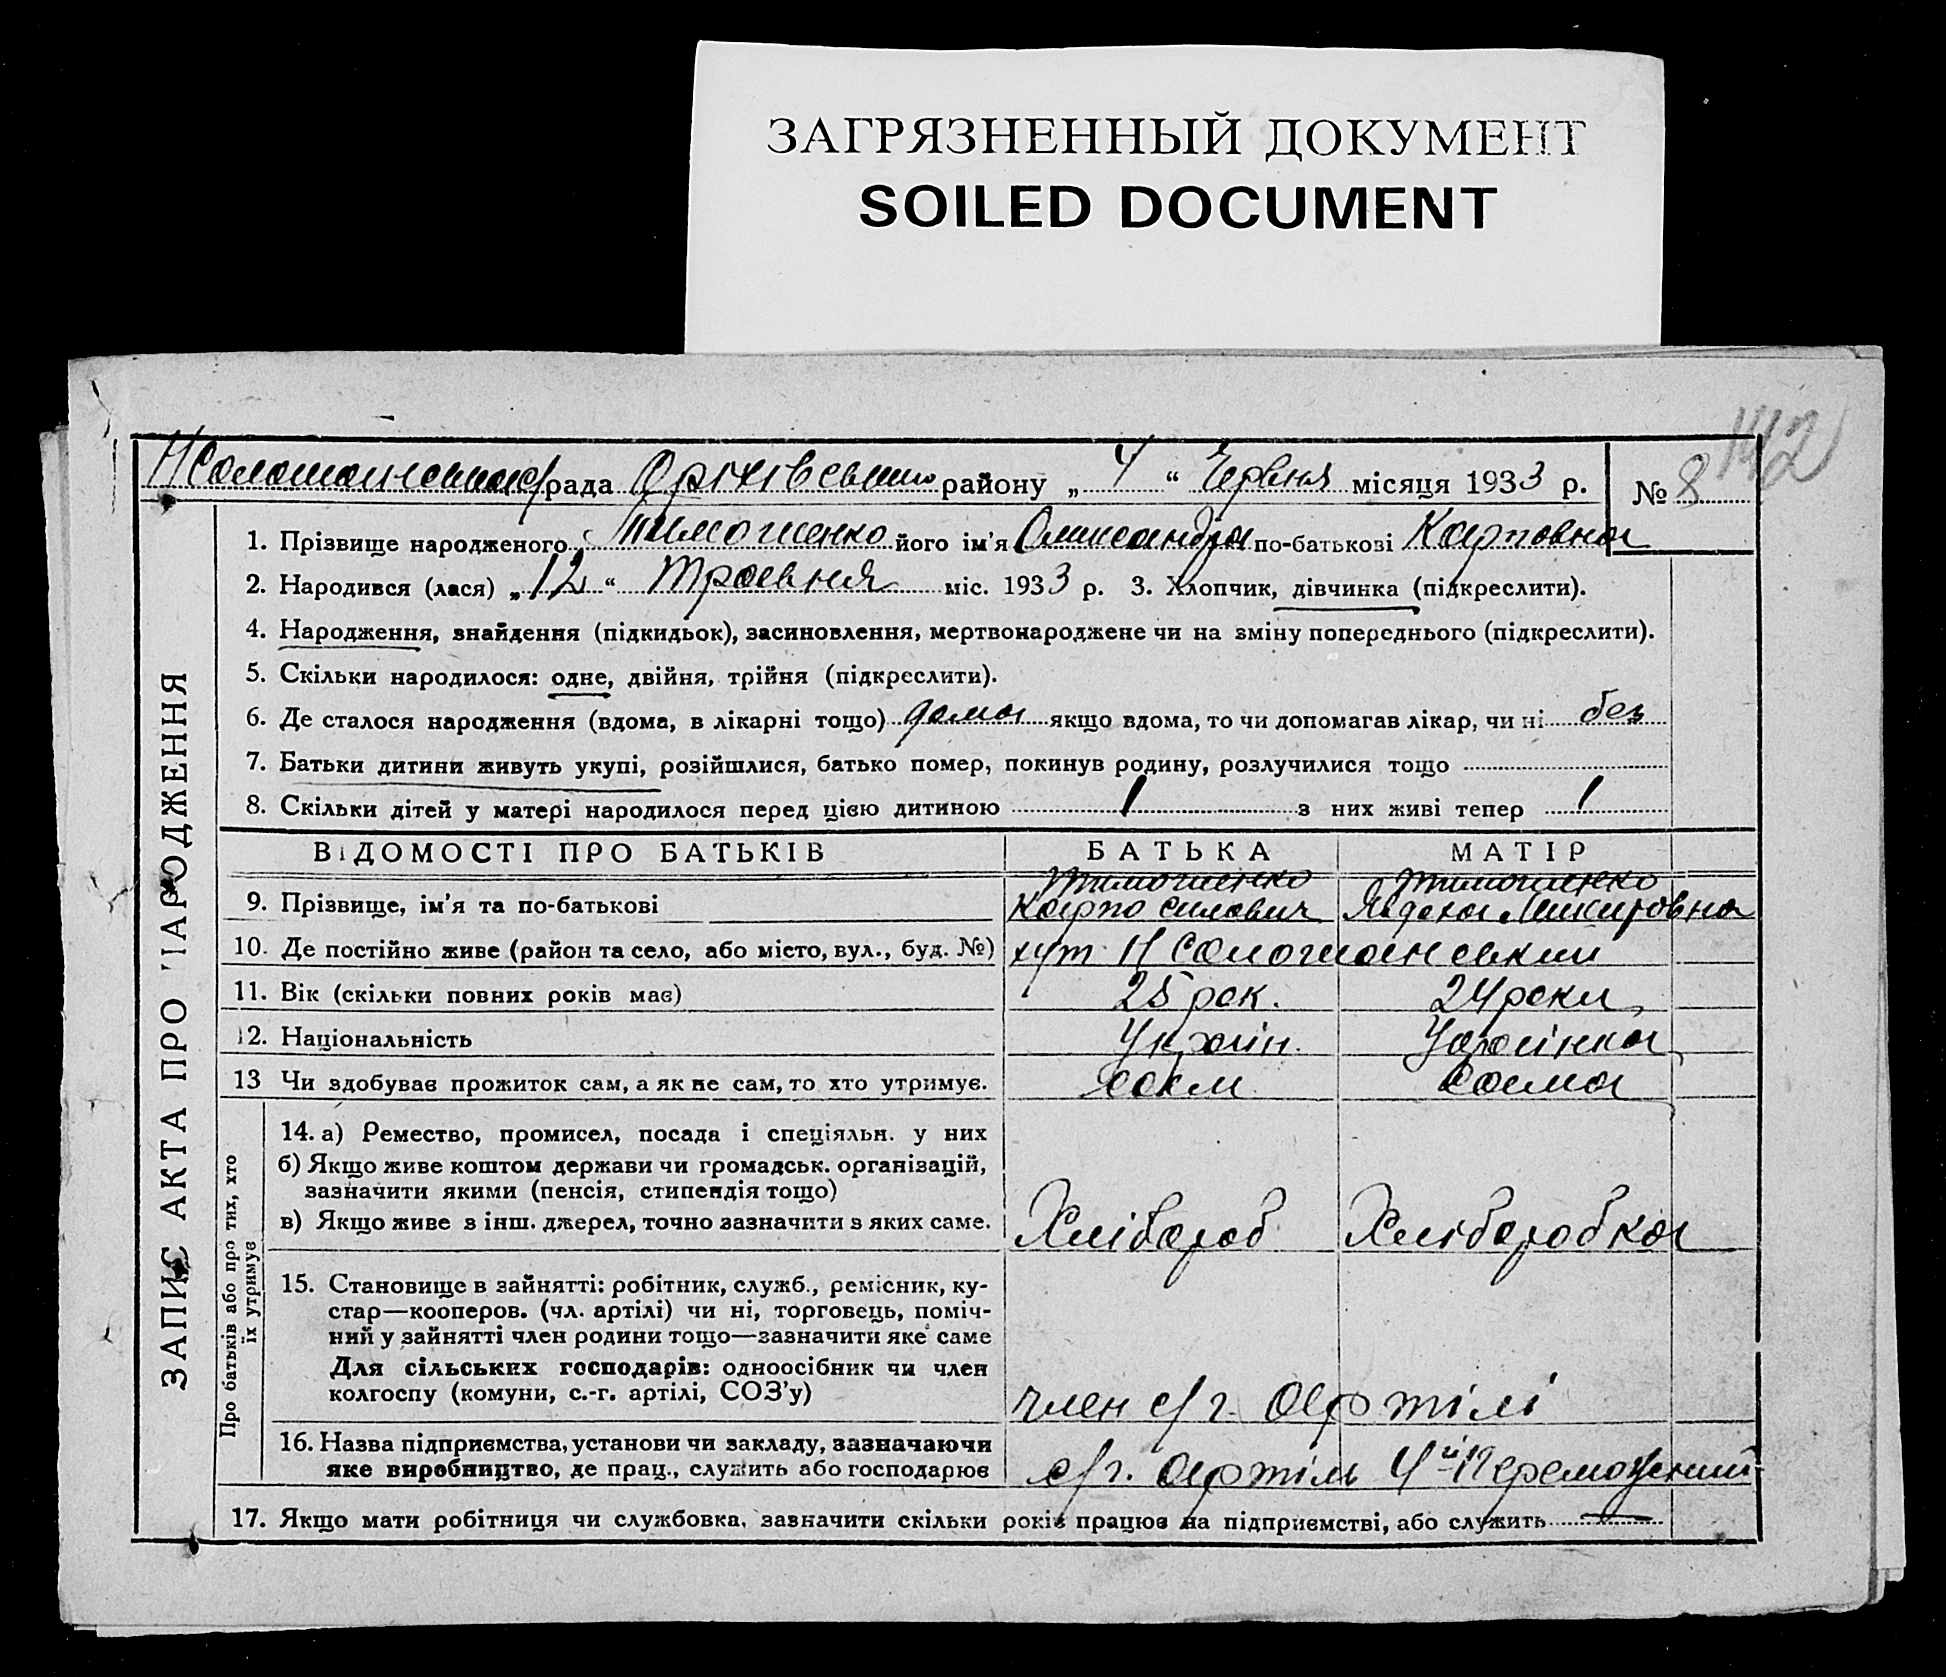 ЗАГРЯЗНЕННЫЙ ДОКУМЕНТ
SOILED DOCUMENT
142
рада района „ 4 “ Червня місяця 1933 р. № 8
1. Прізвище народженого Тимошенко його ім'я Олександра по-батькові Карповна
2. Народився (лася) „ 12 “ Травня міс. 1933 р. 3. Хлопчик, дівчинка (підкреслити).
4. Народження, знайдення (підкидьок), засиновлення, мертвонароджене чи на зміну попереднього (підкреслити).
5. Скільки народилося: одне, двійня, трійня (підкреслити).
6. Де сталося народження (вдома, в лікарні тощо) дома якщо вдома, то чи допомагав лікар, чи ні без
7. Батьки дитини живуть укупі, розійшлися, батько помер, покинув родину, розлучилися тощо
8. Скільки дітей у матері народилося перед цією дитиною 1 з них живі тепер 1
ВІДОМОСТІ ПРО БАТЬКІВ БАТЬКА МАТІР
Тимошенко Тимошенко
9. Прізвище, ім'я та по-батькові Карпо Силович Явдоха
10. Де постійно живе (район та село, або місто, вул., буд. №) хут Н Соломанський
11. Вік (скільки повних років має) 25 рок. 24 роки
12. Національність Україн. Українка
13 Чи здобуває прожиток сам, а як не сам, то хто утримує. сам сама
14. а) Ремество, промисел, посада і спеціяльн. у них
б) Якщо живе коштом держави чи громадськ. організацій,
зазначити якими (пенсія, стипендія тощо)
в) Якщо живе з інш. джерел, точно зазначити з яких саме. Хлібороб Хлібаробка
15. Становище в зайнятті: робітник, служб., ремісник, ку-
стар—кооперов. (чл. артілі) чи ні, торговець, поміч-
ний у зайнятті член родини тощо—зазначити яке саме
Для сільських господарів: одноосібник чи член
колгоспу (комуни, с.-г. артілі, СОЗ'у) член с/г. артілі
16. Назва підприємства, установи чи закладу, зазначаючи
яке виробництво, де прац., служить або господарює с/г. артіль 4й
17. Якщо мати робітниця чи службовка, зазначити скільки років працює на підприємстві, або служить —
ЗАПИС АКТА ПРО НАРОДЖЕННЯ
Про батьків або про тих, хто
їх утримує